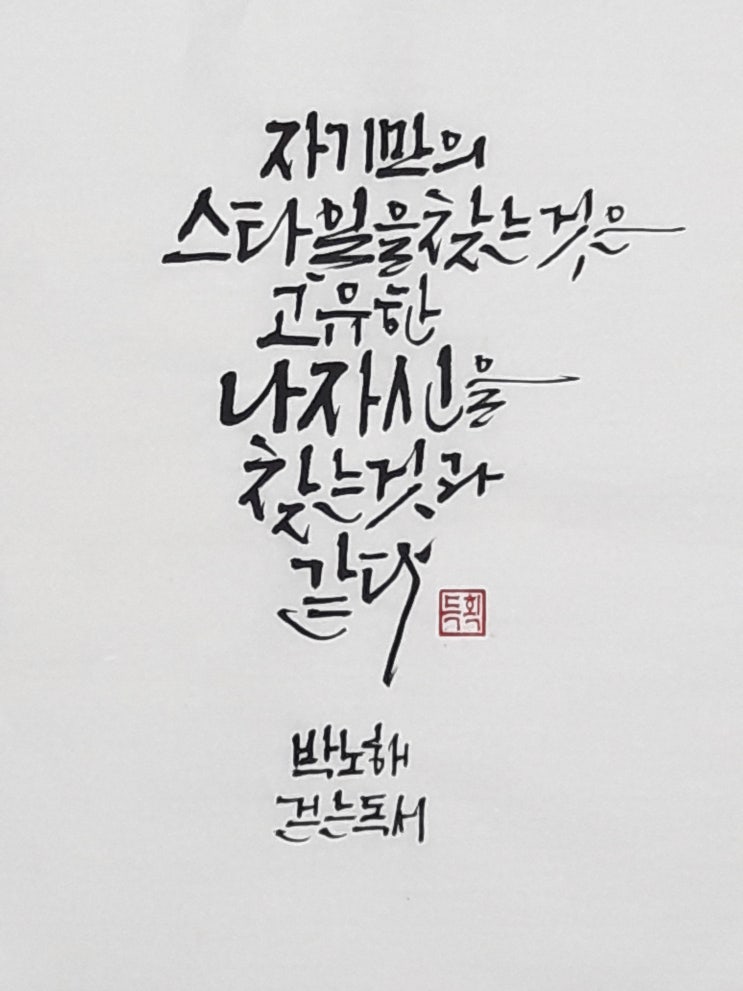 자기만의
스타일을 찾는 것은
고유한
나 자신을
찾는 것과
같다
득획
박노해
걷는 독서